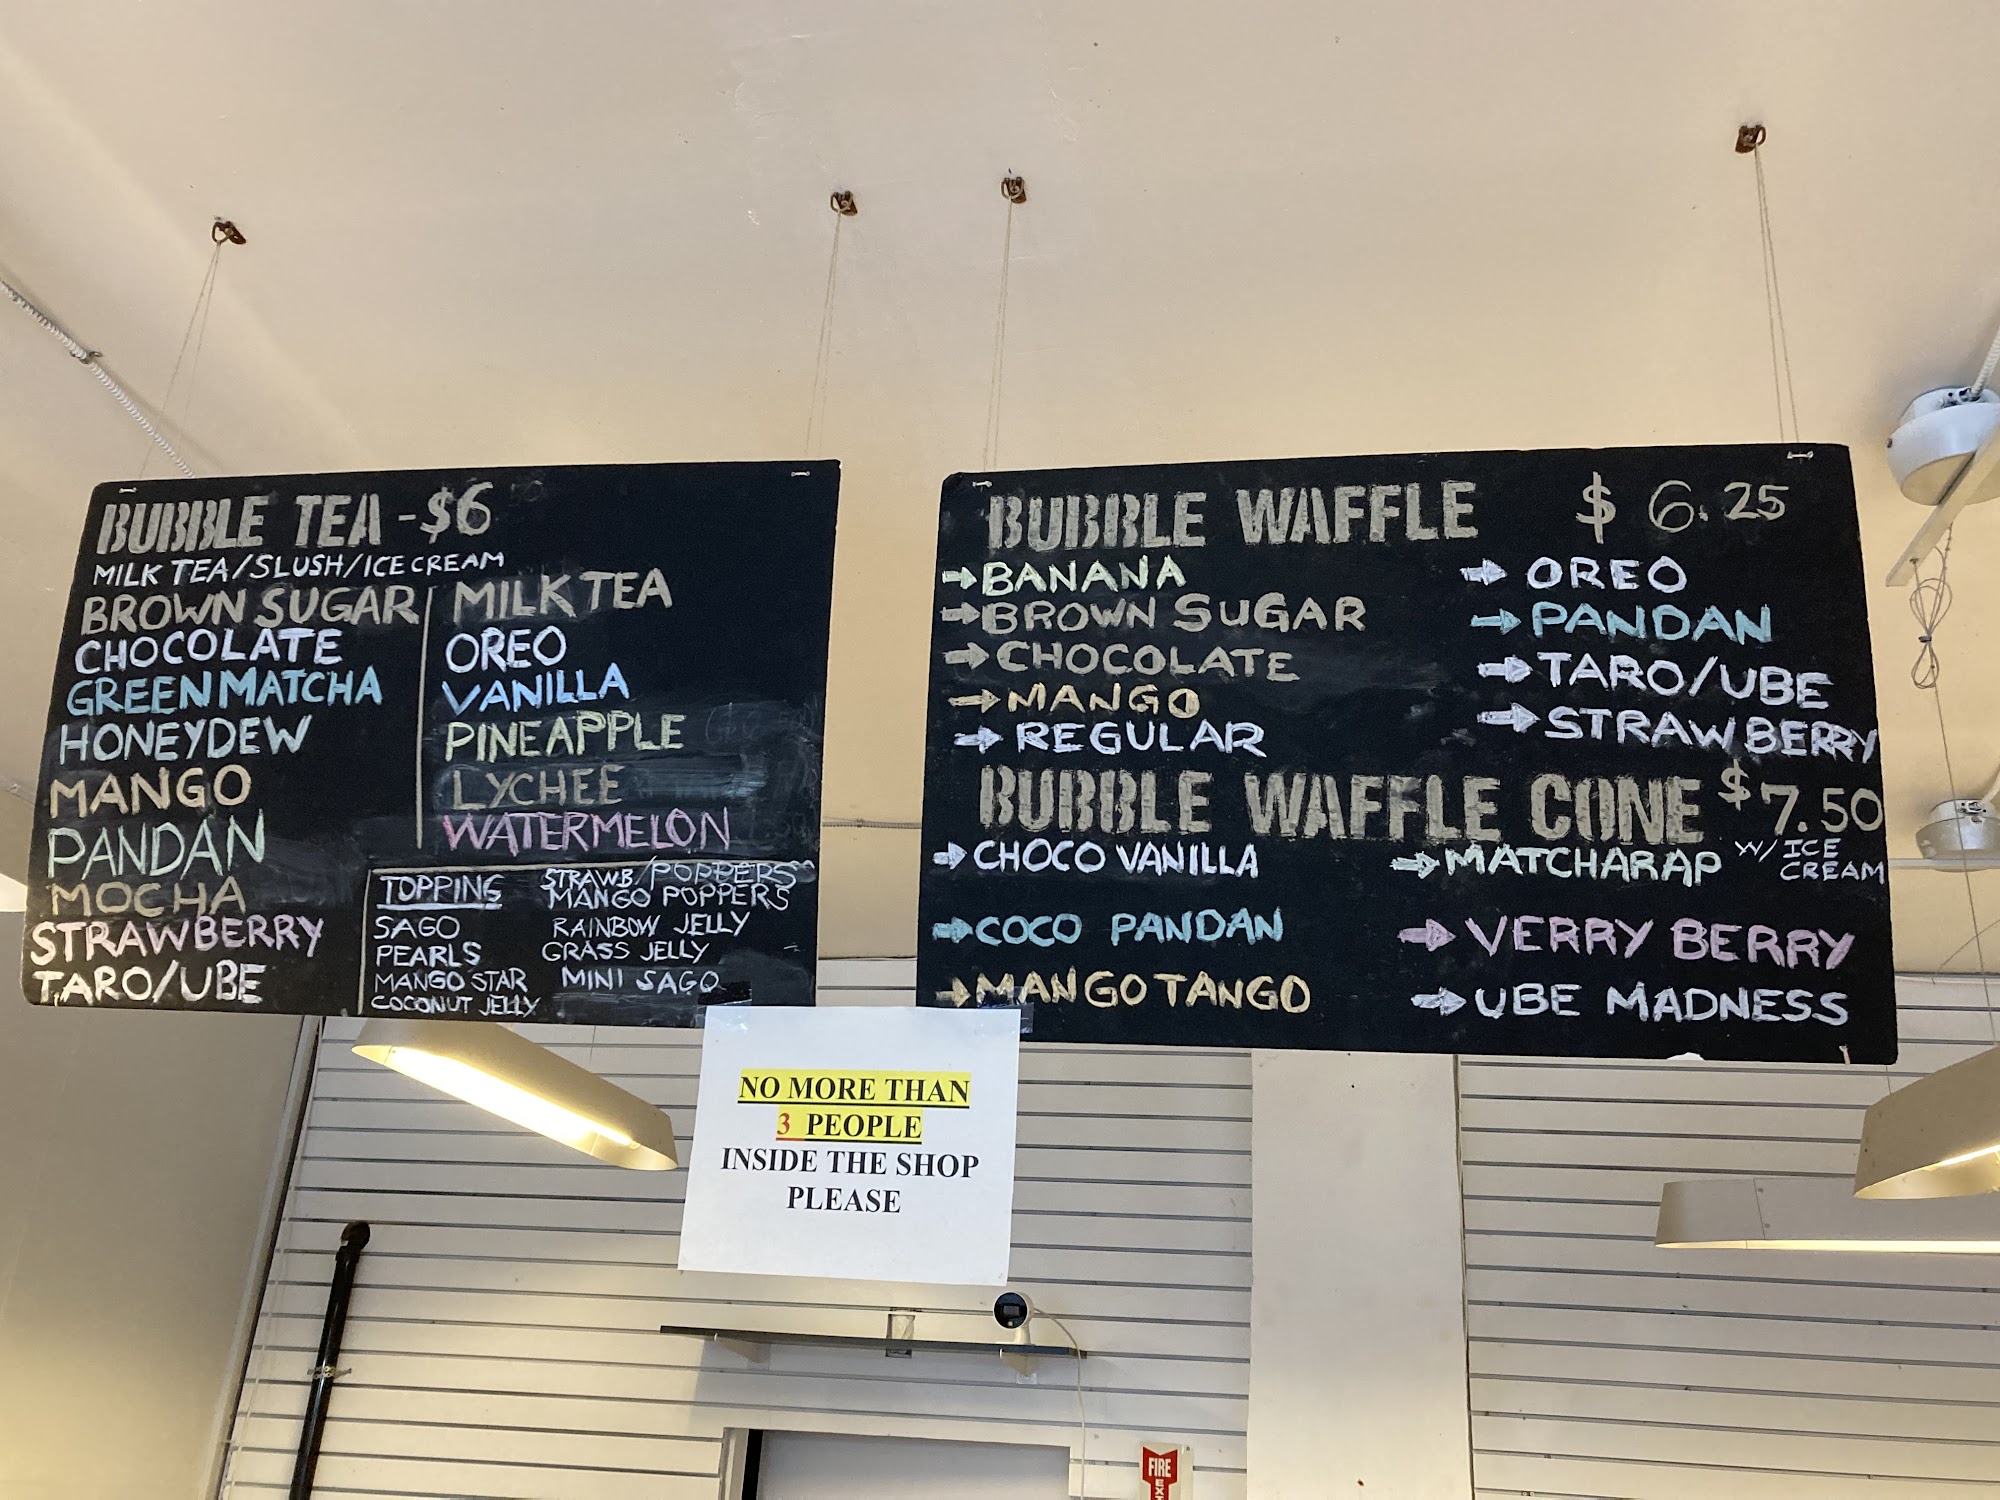 BUBBLE TEA - $6
MILK TEA/SLUSH/ICE CREAM
BROWN SUGAR
CHOCOLATE
GREEN MATCHA
HONEYDEW
MANGO
PANDAN
MOCHA
STRAWBERRY
TARO/UBE
MILK TEA
OREO
VANILLA
PINEAPPLE
LYCHEE
WATERMELON
TOPPING
SAGO
PEARLS
MANGO STAR
COCONUT JELLY
STRAWB/POPPERS
MANGO POPPERS
RAINBOW JELLY
GRASS JELLY
MINI SAGO
BUBBLE WAFFLE $6.25
→BANANA
→BROWN SUGAR
→CHOCOLATE
→MANGO
→REGULAR
→OREO
→PANDAN
→TARO/UBE
→STRAWBERRY
BUBBLE WAFFLE CONE $7.50
W/ ICE
CREAM
→CHOCO VANILLA
→COCO PANDAN
→MANGO TANGO
→MATCHARAP
→VERRY BERRY
→UBE MADNESS
NO MORE THAN
3 PEOPLE
INSIDE THE SHOP
PLEASE
FIRE